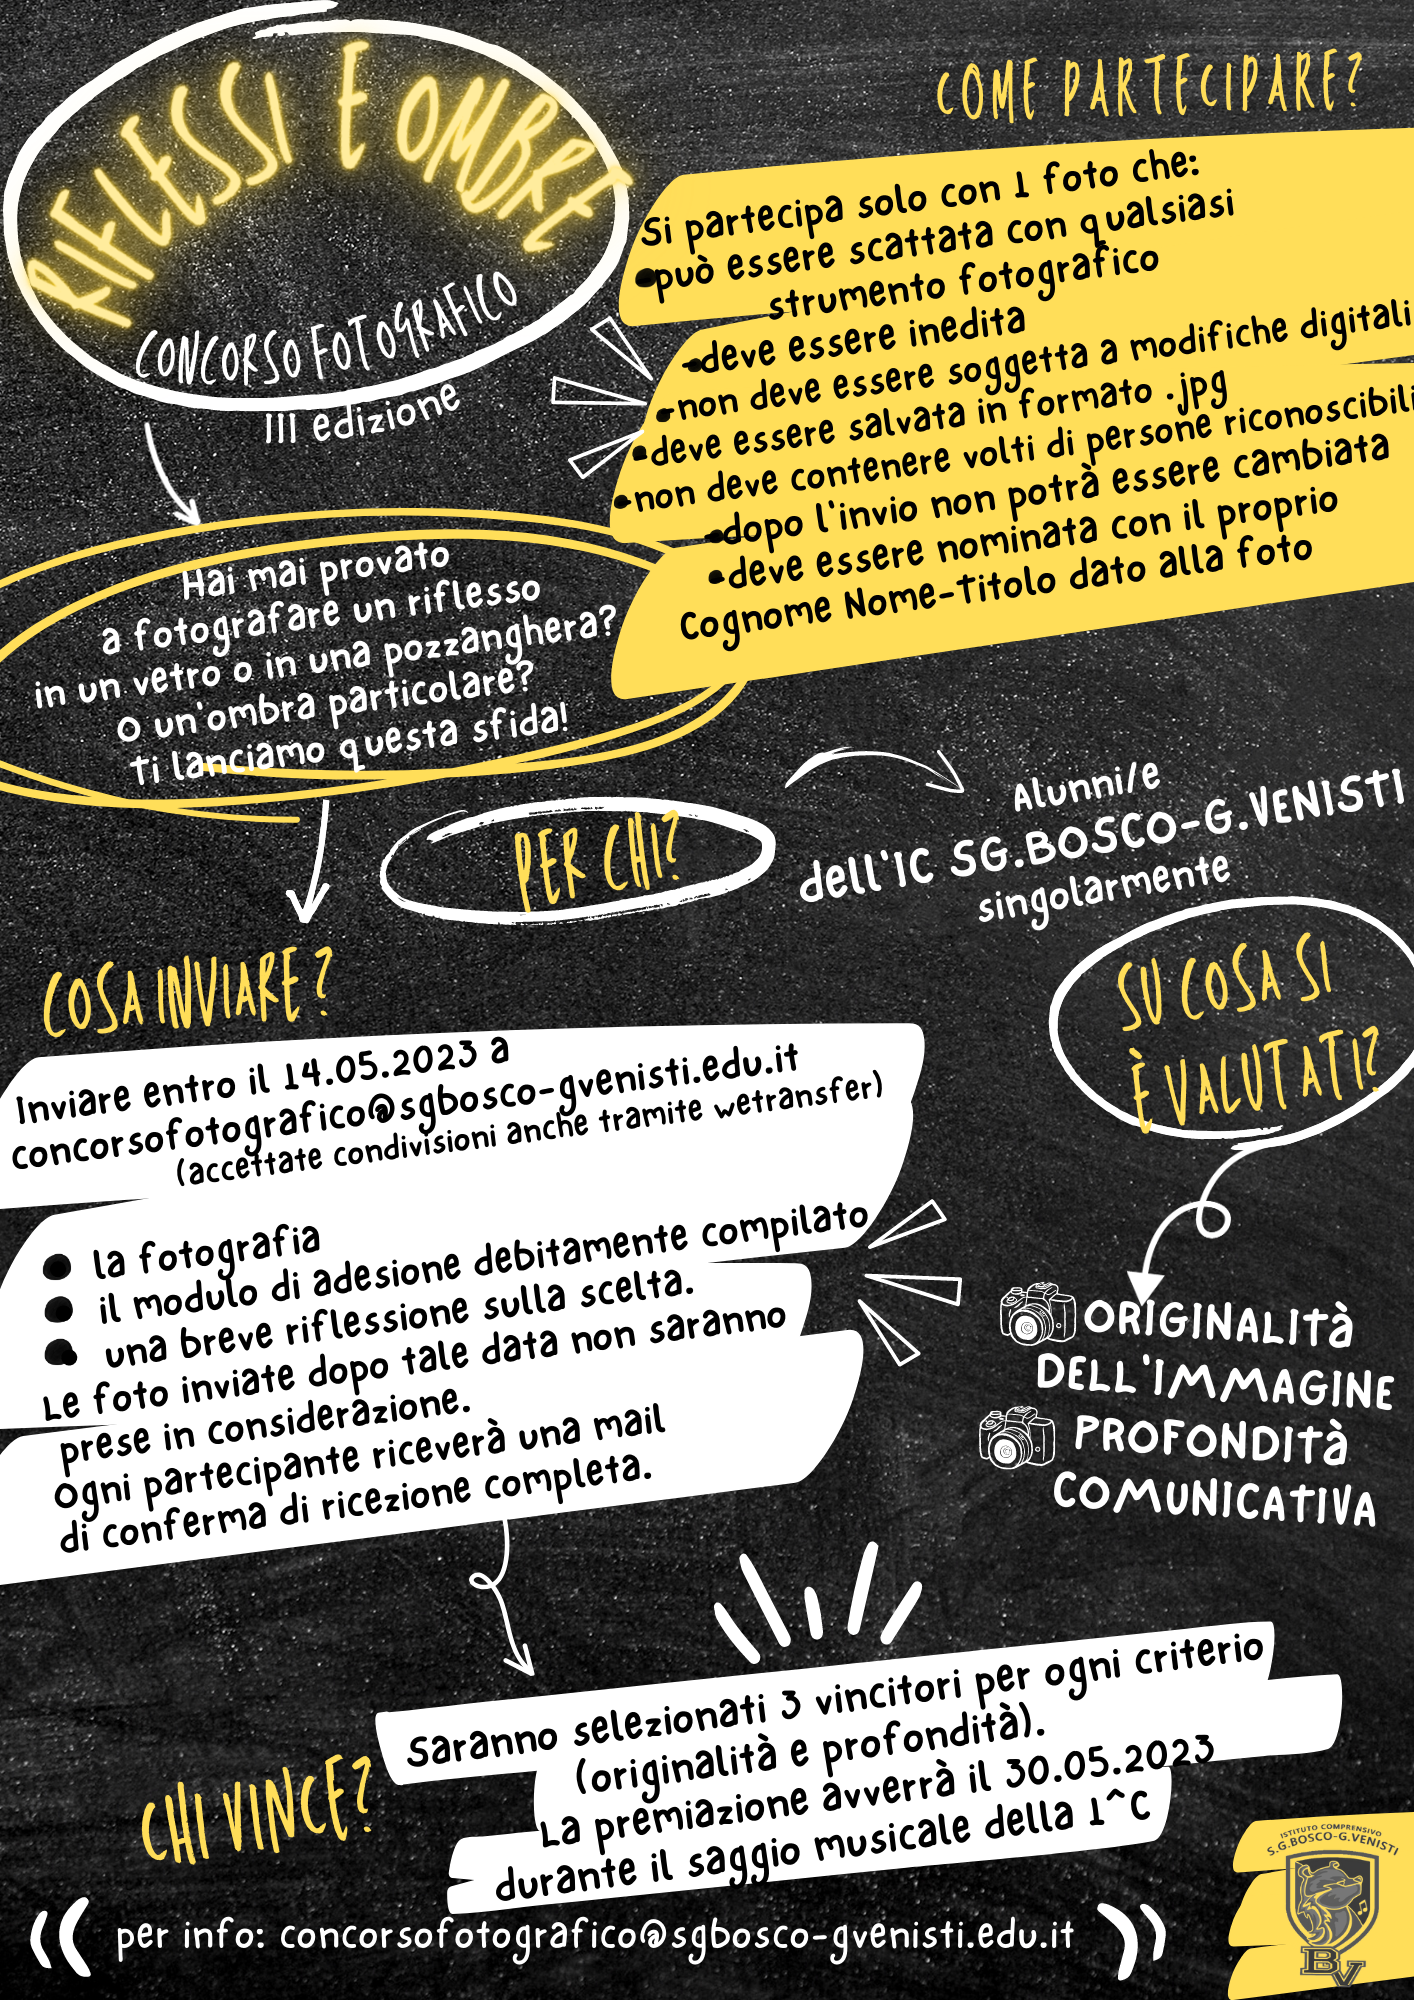 RIFLESSI E OMBRE
CONCORSO FOTOGRAFICO
III edizione
COME PARTECIPARE?
Si partecipa solo con 1 foto che:
può essere scattata con qualsiasi
strumento fotografico
deve essere inedita
non deve essere soggetta a modifiche digitali
deve essere salvata in formato .jpg
non deve contenere volti di persone riconoscibili
dopo l'invio non potrà essere cambiata
deve essere nominata con il proprio
Cognome Nome-Titolo dato alla foto
Hai mai provato
a fotografare un riflesso
in un vetro o in una pozzanghera?
O un'ombra particolare?
Ti lanciamo questa sfida!
PER CHI?
Alunni/e
dell'IC SG.BOSCO-G.VENISTI
singolarmente
COSA INVIARE?
Inviare entro il 14.05.2023 a
concorsofotografico@sgbosco-gvenisti.edu.it
(accettate condivisioni anche tramite wetransfer)
la fotografia
il modulo di adesione debitamente compilato
una breve riflessione sulla scelta.
Le foto inviate dopo tale data non saranno
prese in considerazione.
Ogni partecipante riceverà una mail
di conferma di ricezione completa.
SU COSA SI
È VALUTATI?
ORIGINALITÀ
DELL'IMMAGINE
PROFONDITÀ
COMUNICATIVA
CHI VINCE?
Saranno selezionati 3 vincitori per ogni criterio
(originalità e profondità).
La premiazione avverrà il 30.05.2023
durante il saggio musicale della 1^C
per info: concorsofotografico@sgbosco-gvenisti.edu.it
ISTITUTO COMPRENSIVO
S.G.BOSCO-G.VENISTI
BV